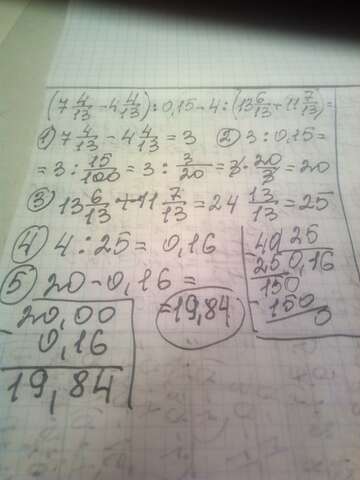 (7 4/13 - 4 4/13) : 0,15 - 4 : (13 6/13 + 11 7/13) =
1) 7 4/13 - 4 4/13 = 3 2) 3 : 0,15 =
= 3 : 15/100 = 3 : 3/20 = 3 · 20/3 = 20
3) 13 6/13 + 11 7/13 = 24 13/13 = 25
4) 4 : 25 = 0,16
5) 20 - 0,16 =
= 19,84
20,00
- 0,16
19,84
40 25
- 25 0,16
150
- 150
0